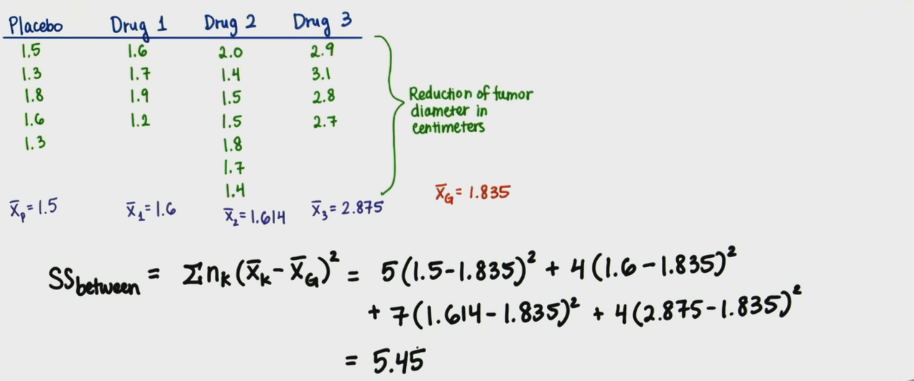 Placebo Drug 1 Drug 2 Drug 3
1.5 1.6 2.0 2.9
1.3 1.7 1.4 3.1
1.8 1.9 1.5 2.8
1.6 1.2 1.5 2.7
1.3 1.8
1.7
1.4
Reduction of tumor
diameter in
centimeters
x̄ₚ = 1.5 x̄₁ = 1.6 x̄₂ = 1.614 x̄₃ = 2.875 x̄_G = 1.835
SS_between = Σn_k(x̄_k - x̄_G)² = 5(1.5-1.835)² + 4(1.6-1.835)²
+ 7(1.614-1.835)² + 4(2.875-1.835)²
= 5.45